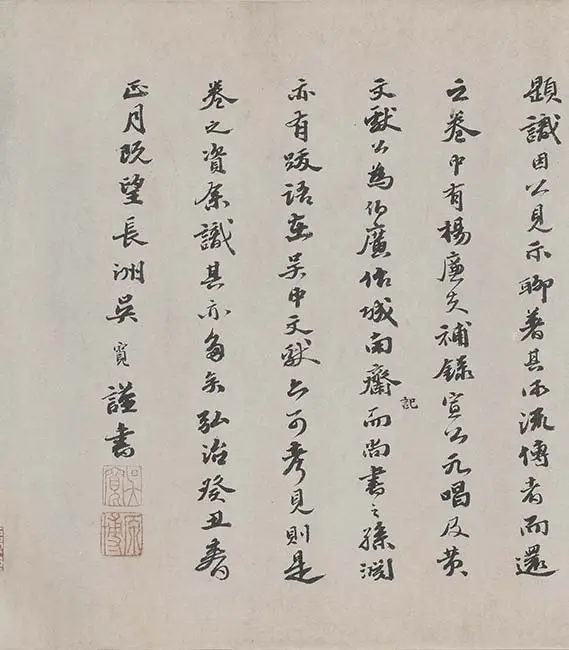 題識因以見示聊著其所流傳者而還
之卷中有楊廉夫補錄宣公元唱及黃
文獻公為伯廣作城南齋記而尚書之孫淵
亦有跋語在吳中文獻可考見則是
卷之資余識其亦多矣弘治癸丑春
正月既望長洲吳寬謹書
吳寬
原博